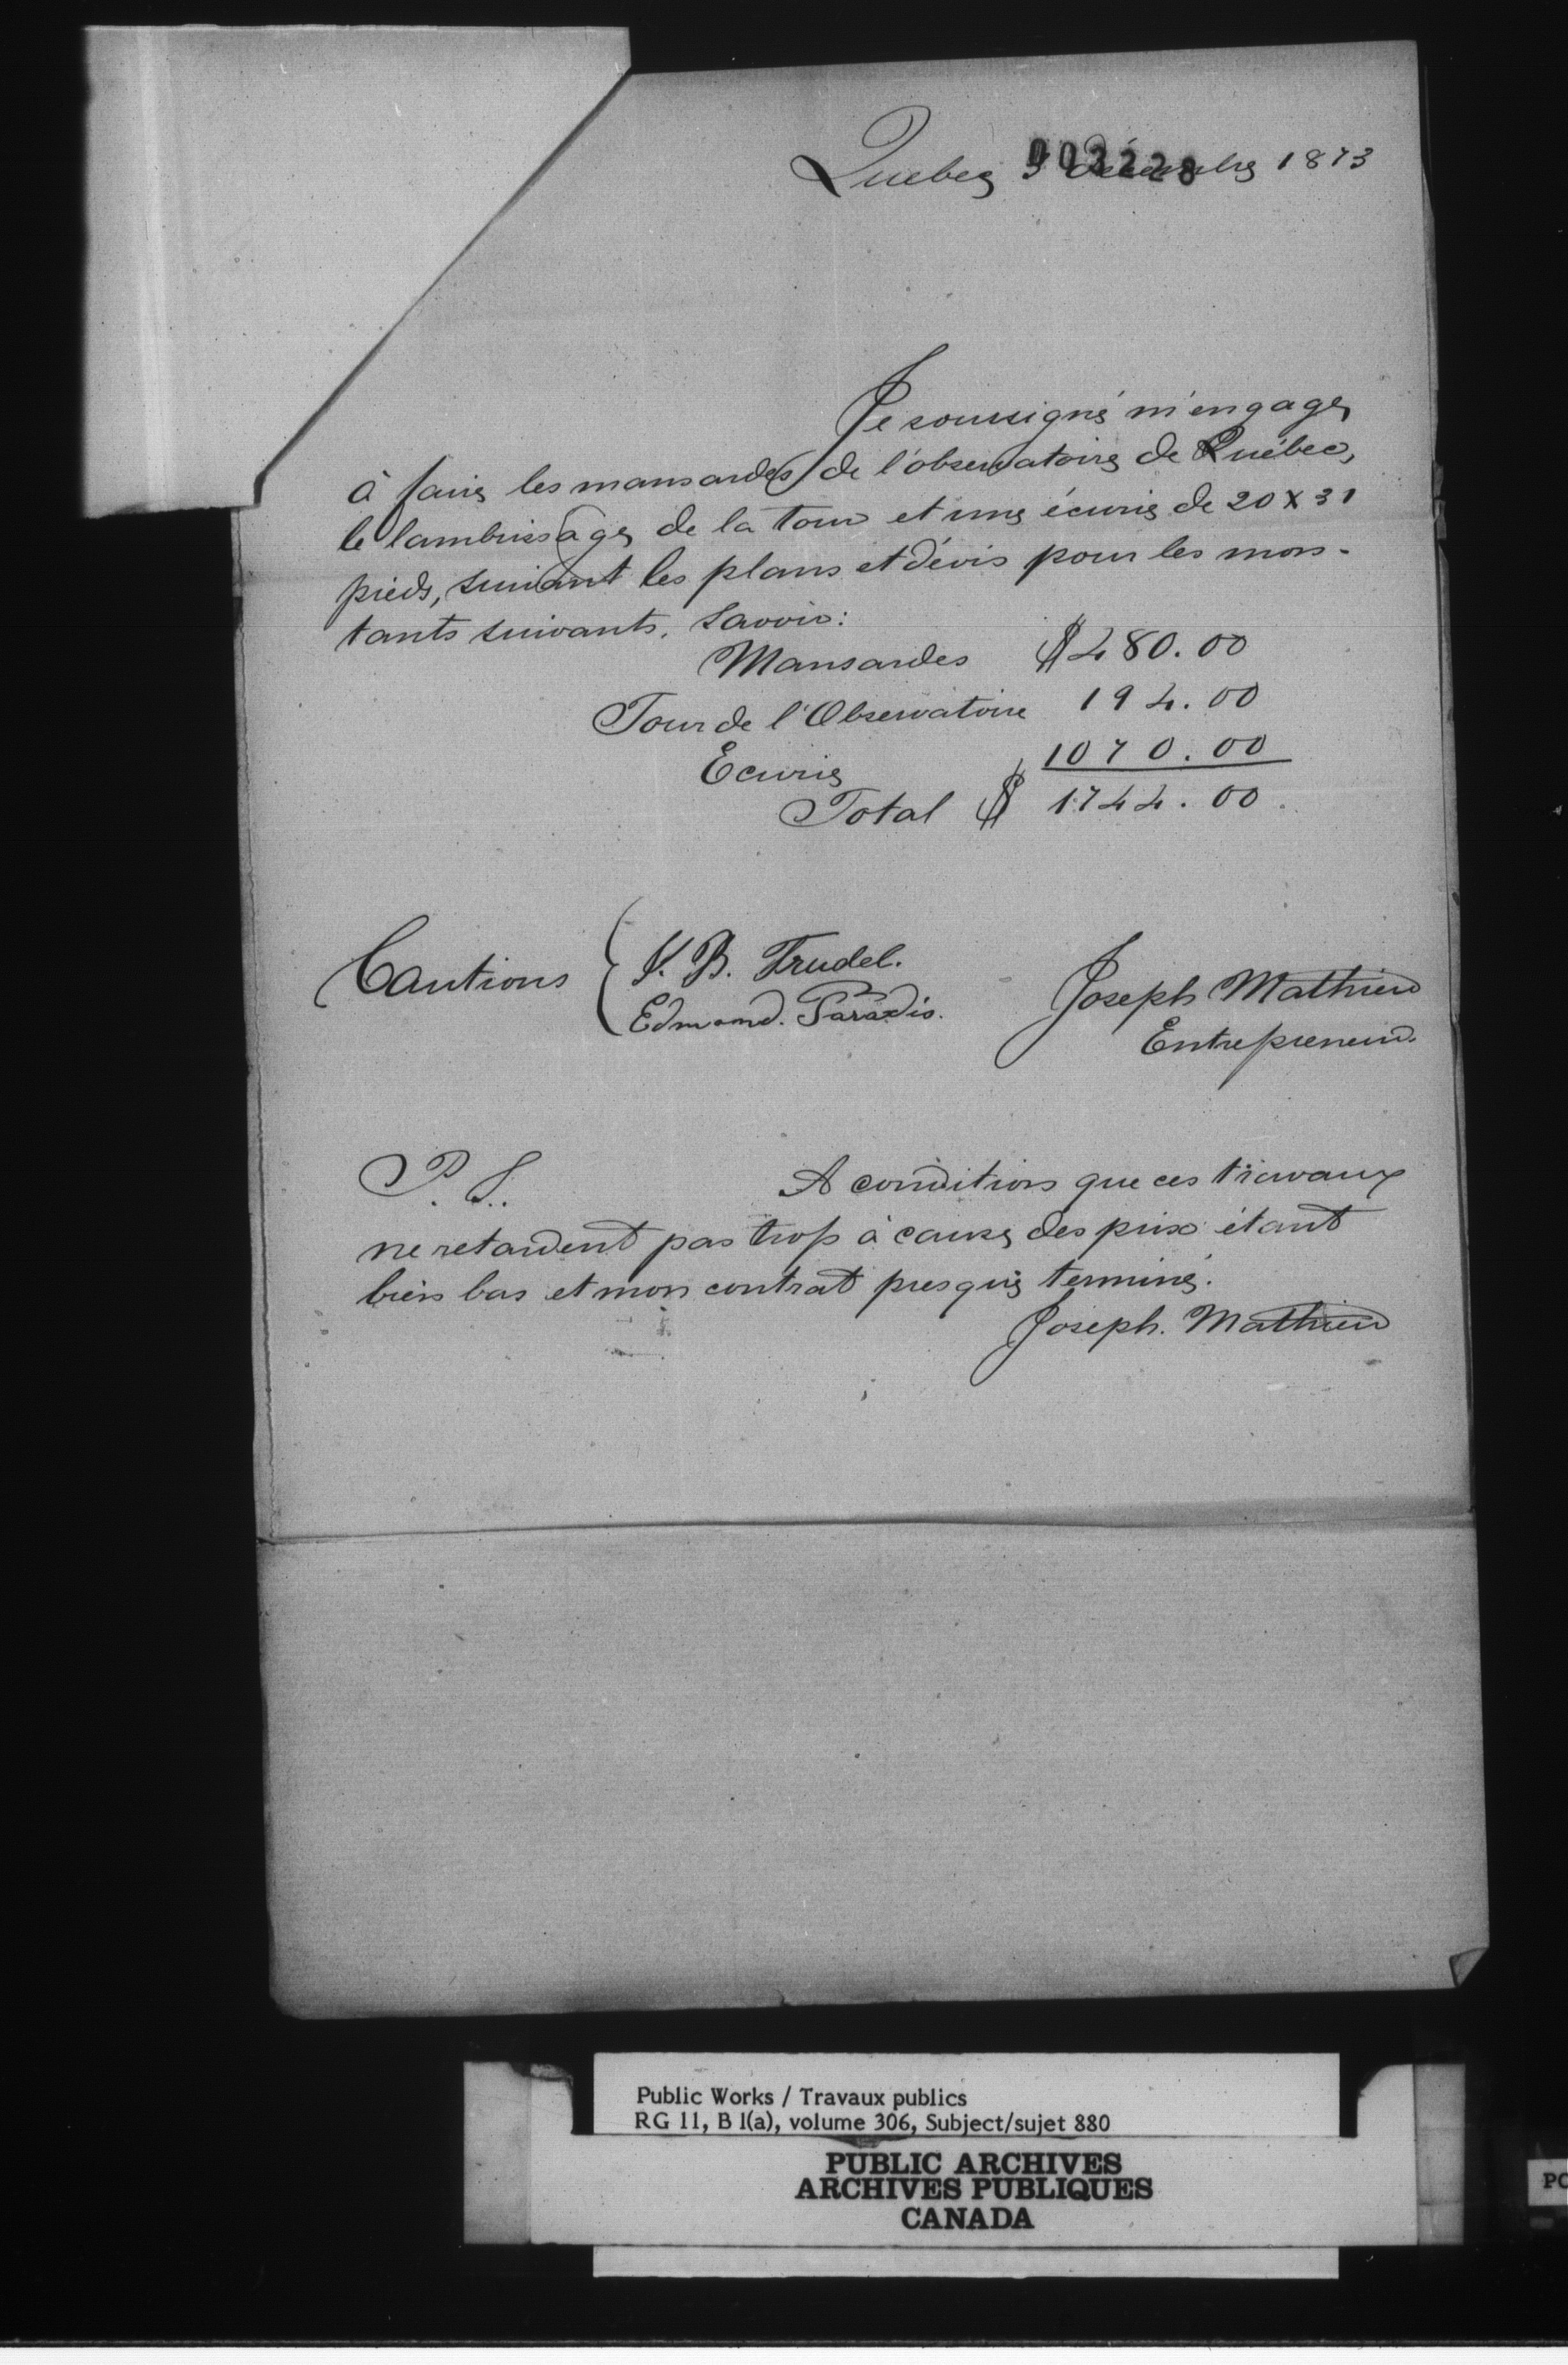 Quebec 003228 Décembre 1873
Je soussigné m'engage
à faire les mansardes de l'observatoire de Québec,
le lambrissage de la tour et une écurie de 20 x 31
pieds, suivant les plans et dévis pour les mon-
tants suivants, savoir:
Mansardes $480.00
Tour de l'Observatoire 194.00
Ecurie 1070.00
Total $ 1744.00
Cautions
J. B. Trudel.
Edmond. Paradis.
Joseph Mathieu
Entrepreneur.
P.S. A condition que ces travaux
ne retardent pas trop à cause des prix étant
bien bas et mon contrat presque terminé.
Joseph. Mathieu
Public Works / Travaux publics
RG 11, B 1(a), volume 306, Subject/sujet 880
PUBLIC ARCHIVES
ARCHIVES PUBLIQUES
CANADA
PO